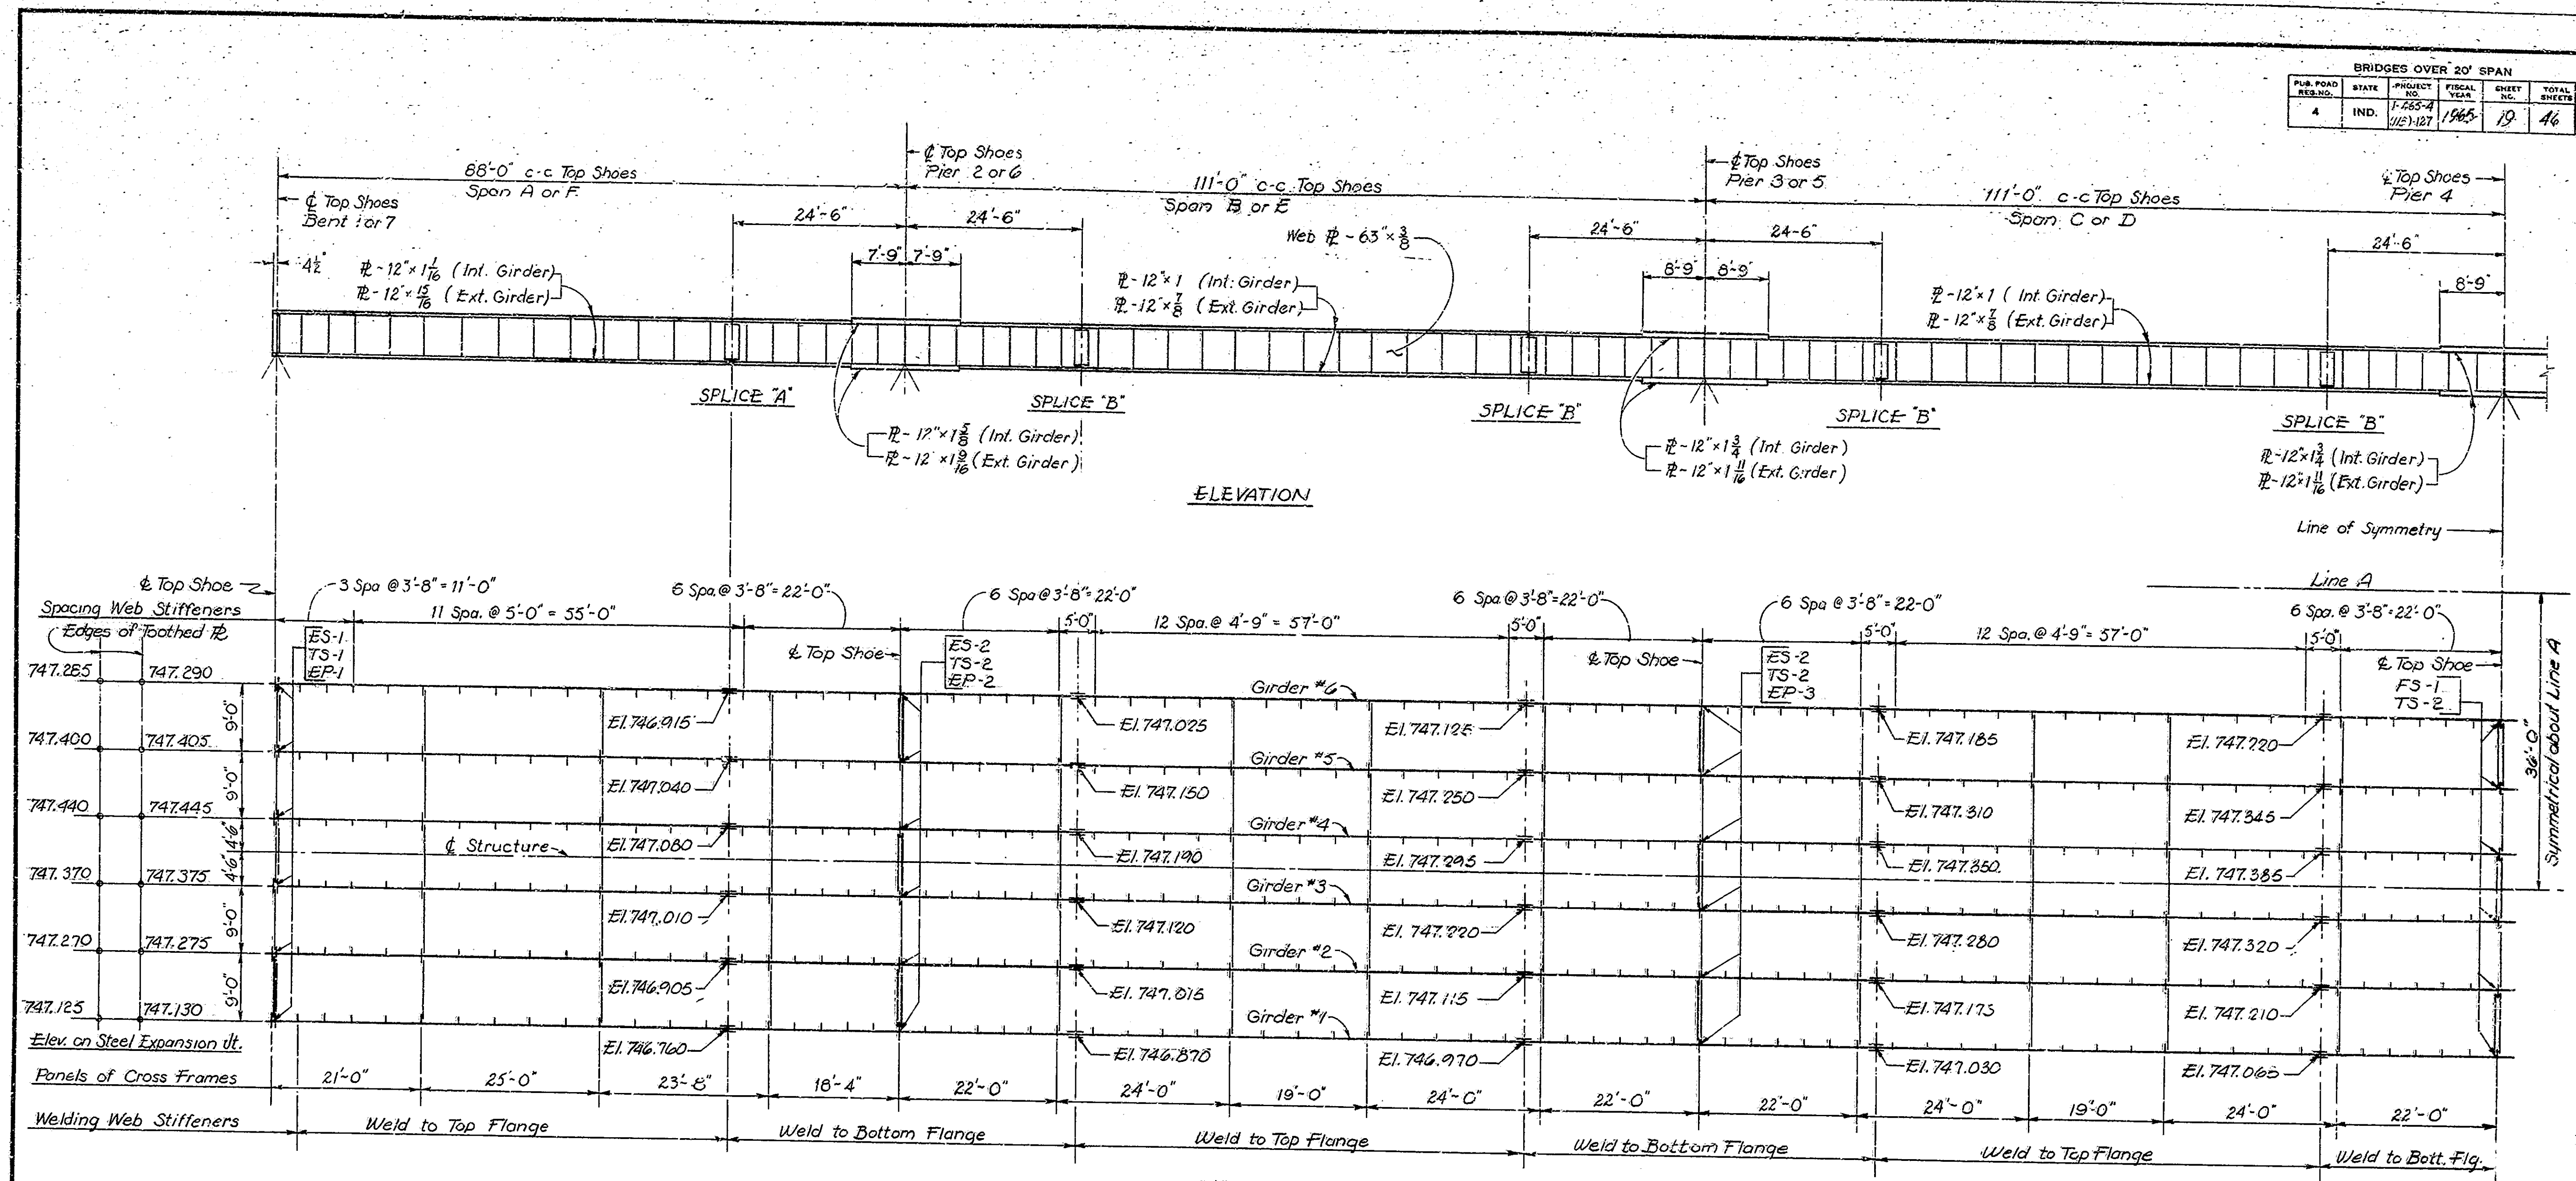 BRIDGES OVER 20' SPAN
PUB. ROAD REG. NO. STATE PROJECT NO. FISCAL YEAR SHEET NO. TOTAL SHEETS
4 IND. I-465-4 (115) 127 1965 19 46
88'-0" c-c Top Shoes
Span A or F
℄ Top Shoes
Bent 1 or 7
℄ Top Shoes
Pier 2 or 6
111'-0" c-c Top Shoes
Span B or E
℄ Top Shoes
Pier 3 or 5
111'-0" c-c Top Shoes
Span C or D
℄ Top Shoes
Pier 4
24'-6"
24'-6"
24'-6"
24-6"
24'-6"
4½"
7'-9" 7'-9"
8'-9" 8'-9"
8'-9"
Web ⅊ - 63" × 3/8
⅊ - 12" × 1 1/16 (Int. Girder)
⅊ - 12" × 15/16 (Ext. Girder)
⅊ - 12" × 1 (Int. Girder)
⅊ - 12" × 7/8 (Ext. Girder)
⅊ - 12" × 1 (Int. Girder)
⅊ - 12" × 7/8 (Ext. Girder)
SPLICE "A"
SPLICE "B"
SPLICE "B"
SPLICE "B"
SPLICE "B"
⅊ - 12" × 1 5/8 (Int. Girder)
⅊ - 12" × 1 9/16 (Ext. Girder)
⅊ - 12" × 1 3/4 (Int. Girder)
⅊ - 12" × 1 11/16 (Ext. Girder)
⅊ - 12" × 1 3/4 (Int. Girder)
⅊ - 12" × 1 11/16 (Ext. Girder)
ELEVATION
Line of Symmetry
Line A
℄ Top Shoe
Spacing Web Stiffeners
3 Spa @ 3'-8" = 11'-0"
11 Spa. @ 5'-0" = 55'-0"
6 Spa. @ 3'-8" = 22'-0"
6 Spa @ 3'-8" = 22'-0"
5'-0"
12 Spa. @ 4'-9" = 57'-0"
5'-0"
6 Spa. @ 3'-8" = 22'-0"
6 Spa @ 3'-8" = 22'-0"
5'-0"
12 Spa. @ 4'-9" = 57'-0"
5'-0"
6 Spa. @ 3'-8" = 22'-0"
Edges of Toothed ⅊
ES-1
TS-1
EP-1
℄ Top Shoe
ES-2
TS-2
EP-2
℄ Top Shoe
ES-2
TS-2
EP-3
℄ Top Shoe
FS-1
TS-2
36'-0"
Symmetrical about Line A
747.285 747.290
747.400 747.405
747.440 747.445
747.370 747.375
747.270 747.275
747.125 747.130
9'-0"
9'-0"
4'-6" 4'-6"
9'-0"
9'-0"
Girder #6
El. 746.915 El. 747.025 El. 747.125 El. 747.185 El. 747.220
Girder #5
El. 747.040 El. 747.150 El. 747.250 El. 747.310 El. 747.345
Girder #4
℄ Structure
El. 747.080 El. 747.190 El. 747.295 El. 747.350 El. 747.385
Girder #3
El. 747.010 El. 747.120 El. 747.220 El. 747.280 El. 747.320
Girder #2
El. 746.905 El. 747.015 El. 747.115 El. 747.175 El. 747.210
Girder #1
El. 746.760 El. 746.870 El. 746.970 El. 747.030 El. 747.065
Elev. on Steel Expansion Jt.
Panels of Cross Frames 21'-0" 25'-0" 23'-8" 18'-4" 22'-0" 24'-0" 19'-0" 24'-0" 22'-0" 22'-0" 24'-0" 19'-0" 24'-0" 22'-0"
Welding Web Stiffeners Weld to Top Flange Weld to Bottom Flange Weld to Top Flange Weld to Bottom Flange Weld to Top Flange Weld to Bott. Flg.